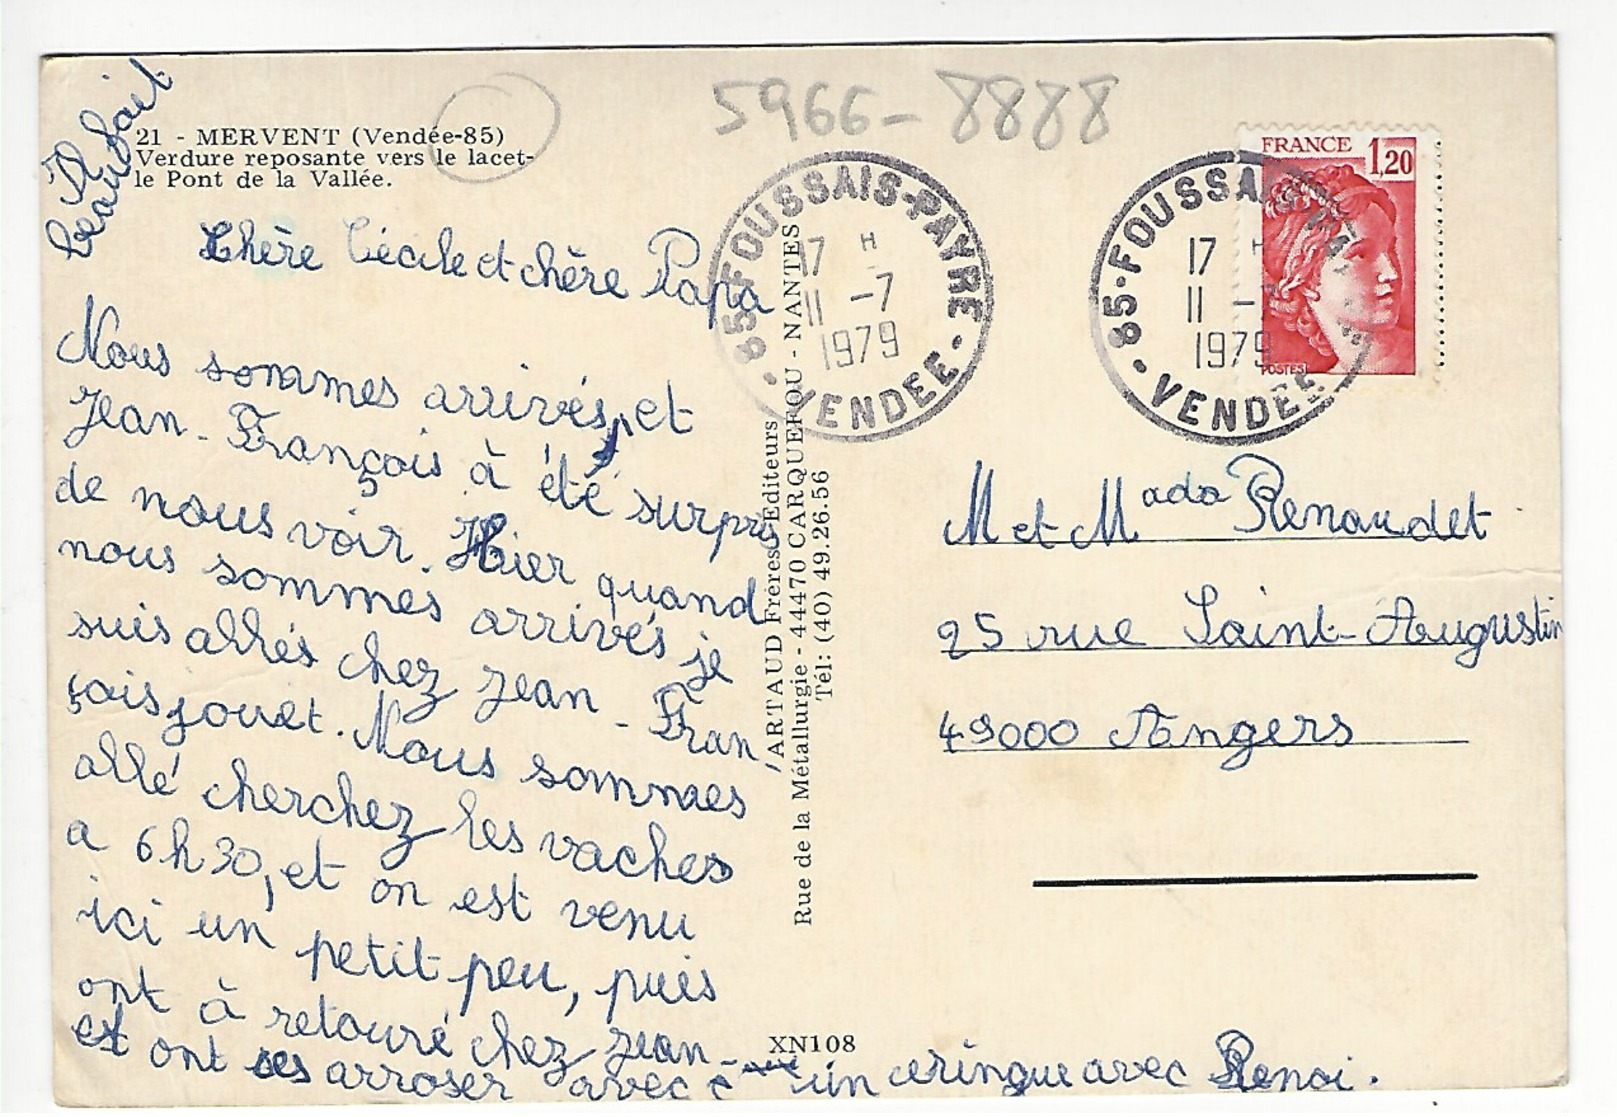 5966-8888
21 - MERVENT (Vendée-85)
Verdure reposante vers le lacet-
le Pont de la Vallée.
Il fait
beau
Chère Cécile et chère Papa
Nous sommes arrivés, et
Jean-François à été surpris
de nous voir. Hier quand
nous sommes arrivés je
suis allés chez Jean-Fran
çois jouet. Nous sommes
allé cherchez les vaches
a 6h30, et on est venu
ici un petit peu, puis
ont à retouré chez Jean-
et ont ses arroser avec un ceringue avec Renoi.
ARTAUD Frères, Editeurs
Rue de la Métallurgie - 44470 CARQUEFOU - NANTES
Tél: (40) 49.26.56
XN108
85-FOUSSAIS-PAYRE
17 H
11 -7
1979
VENDEE
85-FOUSSAIS-PAYRE
17 H
11 -7
1979
VENDEE
FRANCE 1,20
POSTES
M et Mada Renaudet
25 rue Saint-Augustin
49000 Angers